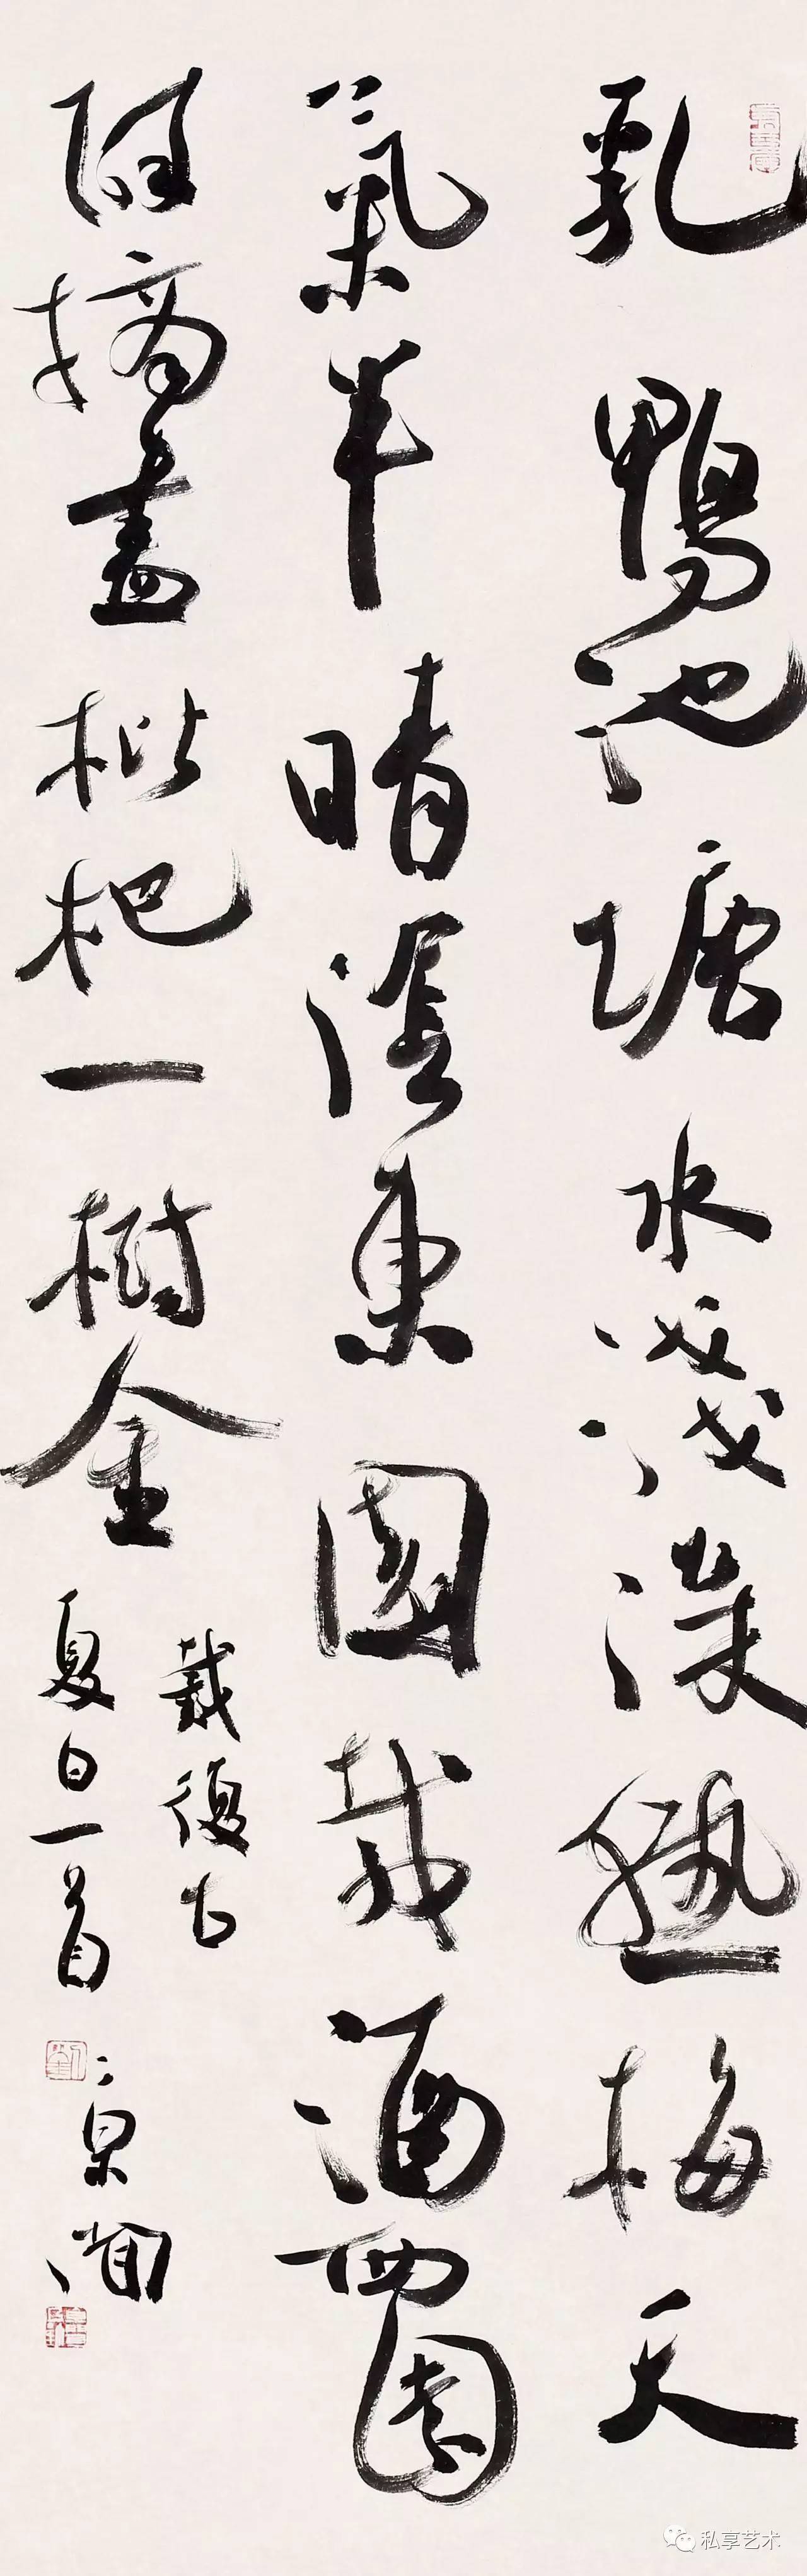 乳鴨池塘水淺深熟梅天
氣半晴陰東園載酒西園
醉摘盡枇杷一樹金
戴復古
夏日一首
私享艺术